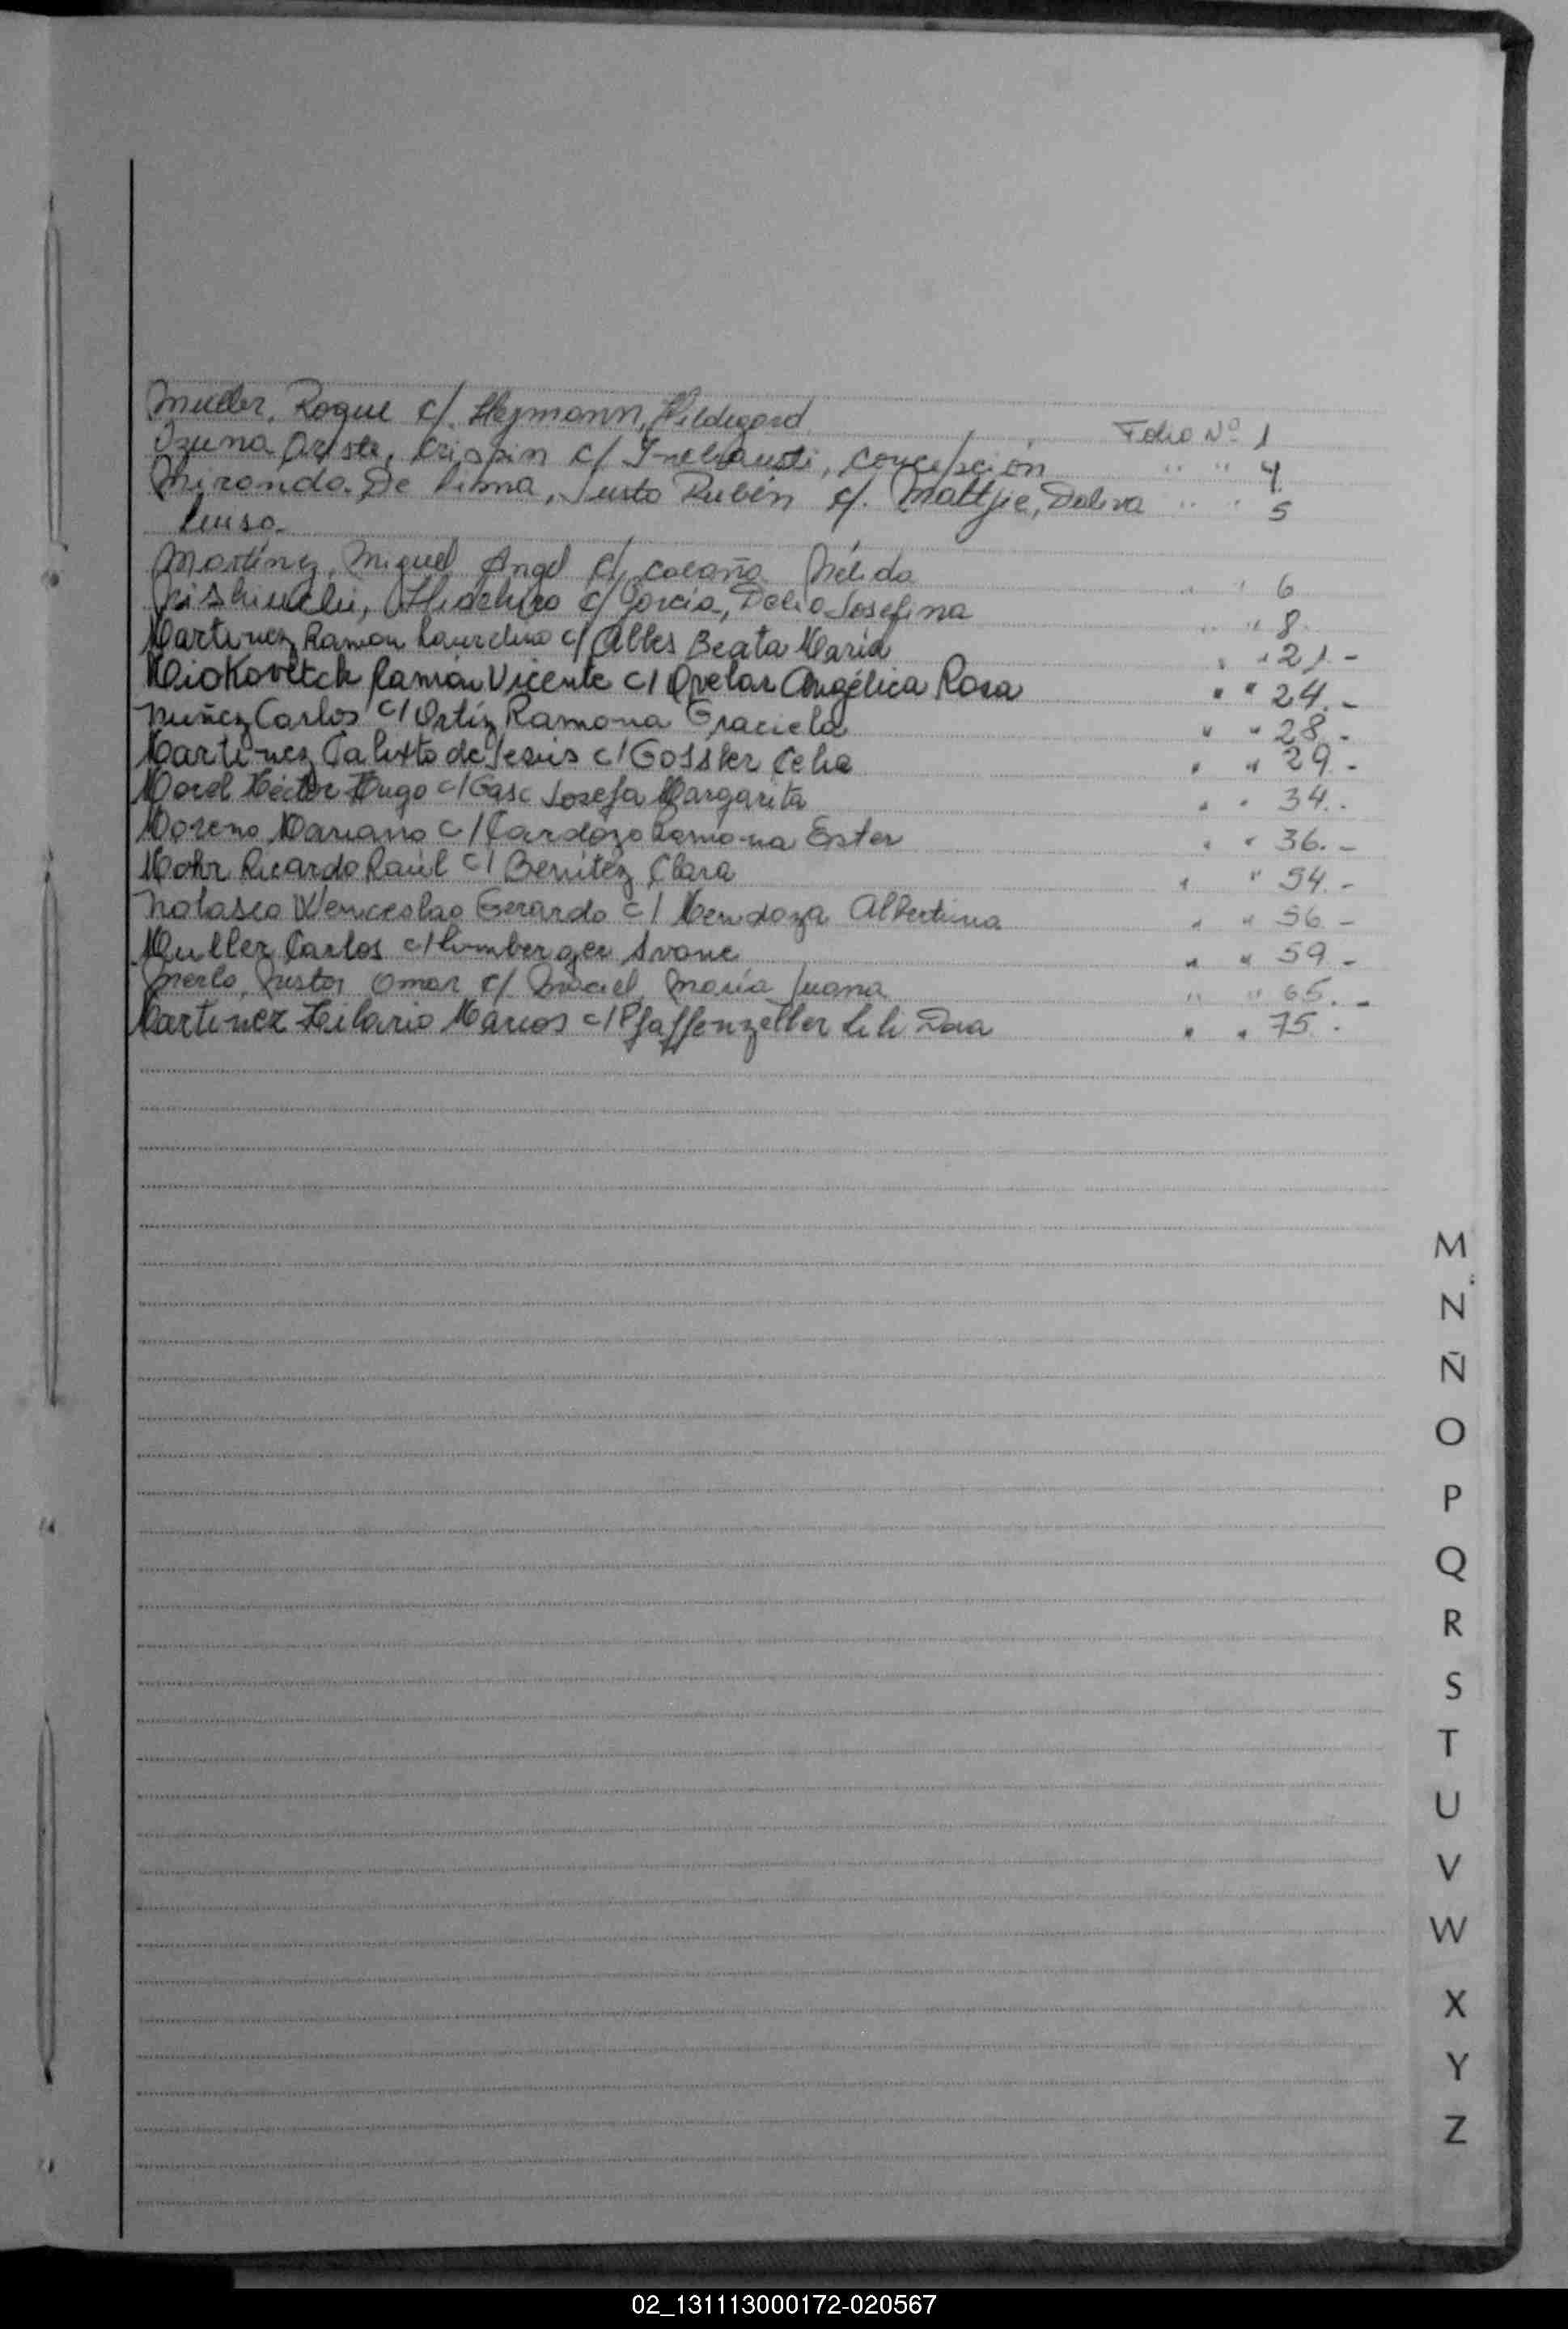 Muller, Roque c/. Heymann, Hildegard Folio Nº 1
Ozuna Oreste, Crispin c/ Insfrausti, Concepción " " 4
Miranda De Lima, Justo Rubén c/. Mattjie, Dalva " " 5
Luisa.
Martínez, Miguel Angel c/. Nélida " " 6
Nishiuchi, c/ García, Delia Josefina " " 8
Martinez Ramon Laurelino c/ Alles Beata María " " 21.-
Miokovitck Ramón Vicente c/ Ovelar Angélica Rosa " " 24.-
Nuñez Carlos c/ Ortíz Ramona Graciela " " 28.-
Martinez Calixto de Jesús c/ Gossler Celia " " 29.-
Morel Héctor Hugo c/ Gasc Josefa Margarita " " 34.-
Moreno Mariano c/ Cardozo Ramona Ester " " 36.-
Mohr Ricardo Raúl c/ Benítez Clara " " 54.-
Nolasco Wenceslao Gerardo c/ Mendoza Albertina " " 56.-
Muller Carlos c/ Limberger Ivone " " 59.-
Merlo, Nestor Omar c/. Maciel, María Juana " " 65.-
Martinez Hilario Marcos c/ Pfaffenzeller Lili Dora " " 75.
M
N
Ñ
O
P
Q
R
S
T
U
V
W
X
Y
Z
02_131113000172-020567